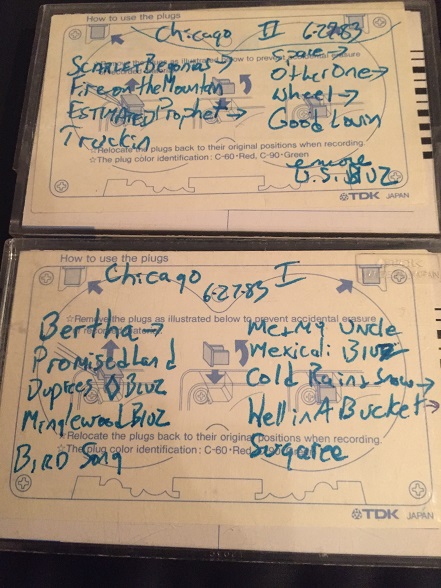 How to use the plugs
Chicago II 6-27-83
Scarlet Begonias →
Fire on the Mountain
ESTIMATED Prophet →
Truckin
Space →
Other One →
Wheel →
Good Lovin
encore
U.S. BLUZ
as illustrated below to prevent accidental
☆Relocate the plugs back to their original positions when recording.
☆The plug color identification: C-60·Red, C-90·Green
TDK JAPAN
How to use the plugs
Chicago I
6-27-83
☆Remove the plugs as illustrated below to prevent accidental erasure
Bertha →
Promised Land
Duprees ◊ BLUZ
Minglewood BLUZ
BIRD Song
Me + My Uncle
Mexicali BLUZ
Cold Rain + Snow →
Hell in A Bucket →
Sugaree
☆Relocate the plugs back to their original positions when recording.
☆The plug color identification: C-60·Red, C-90·Green
TDK JAPAN